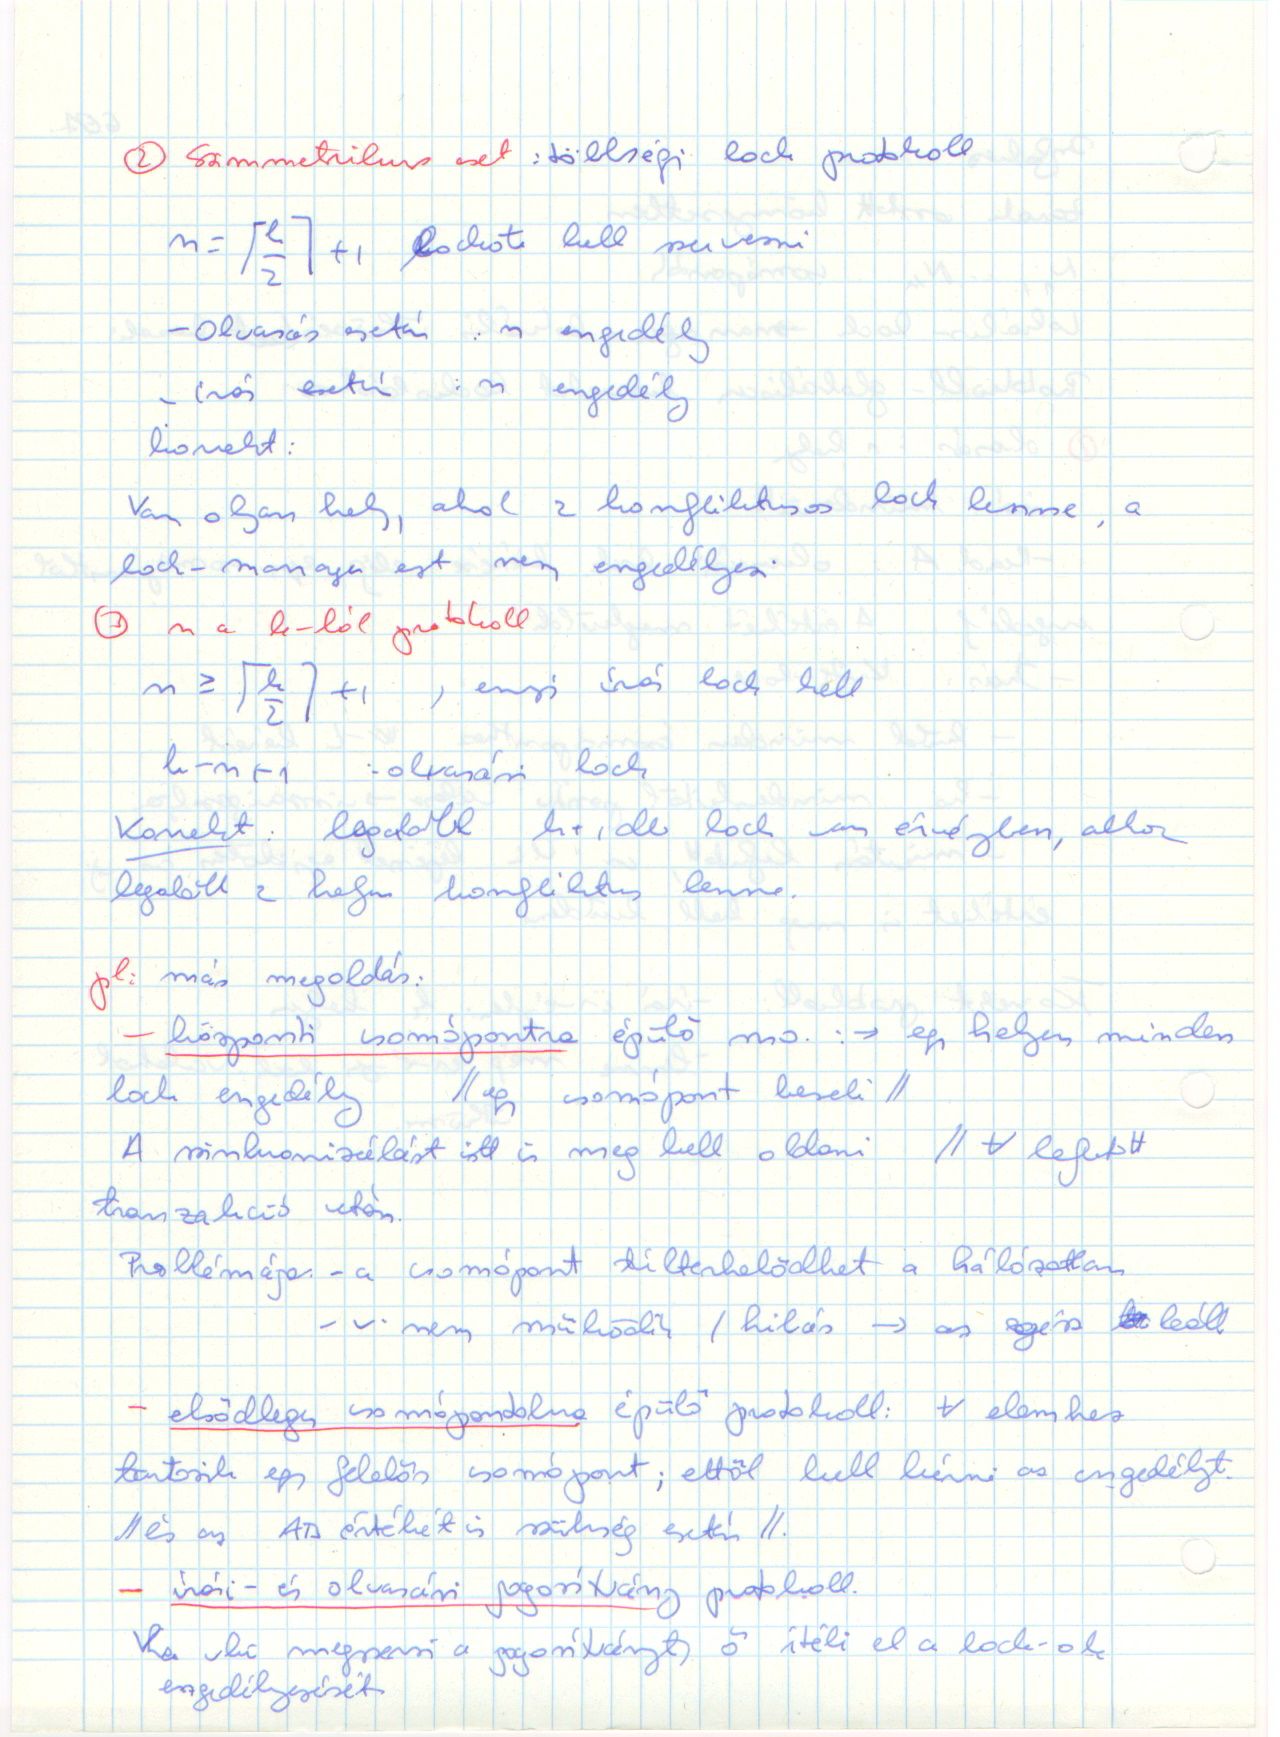 ② Szimmetrikus eset : többségi lock protokoll
n = ⌈k/2⌉ + 1 lockot kell szerezni
- Olvasás esetén : n engedély
- írás esetén : n engedély
korrekt:
Van olyan hely, ahol 2 konfliktusos lock lenne, a
lock-manager ezt nem engedélyezi.
③ n a k-ból protokoll
n ≥ ⌈k/2⌉ + 1 , ennyi írás lock kell
k-n+1 : olvasási lock
Korrekt: legalább k+1 db lock van érvényben, akkor
legalább 2 helyen konfliktus lenne.
pl: más megoldás:
- központi csomópontra épülő mo. : → egy helyen minden
lock engedély // egy csomópont kezeli //
A szinkronizálást itt is meg kell oldani // ∀ lefutott
tranzakció után.
Problémája: - a csomópont túlterhelődhet a hálózatban
- v. nem működik / hibás → az egész leáll
- elsődleges csomópontokra épülő protokoll: ∀ elemhez
tartozik egy felelős csomópont; ettől kell kérni az engedélyt.
// és az AD értékét is szükség esetén //.
- írási- és olvasási jogosítvány protokoll.
Ha vki megszerzi a jogosítványt, ő ítéli el a lock-ok
engedélyezését